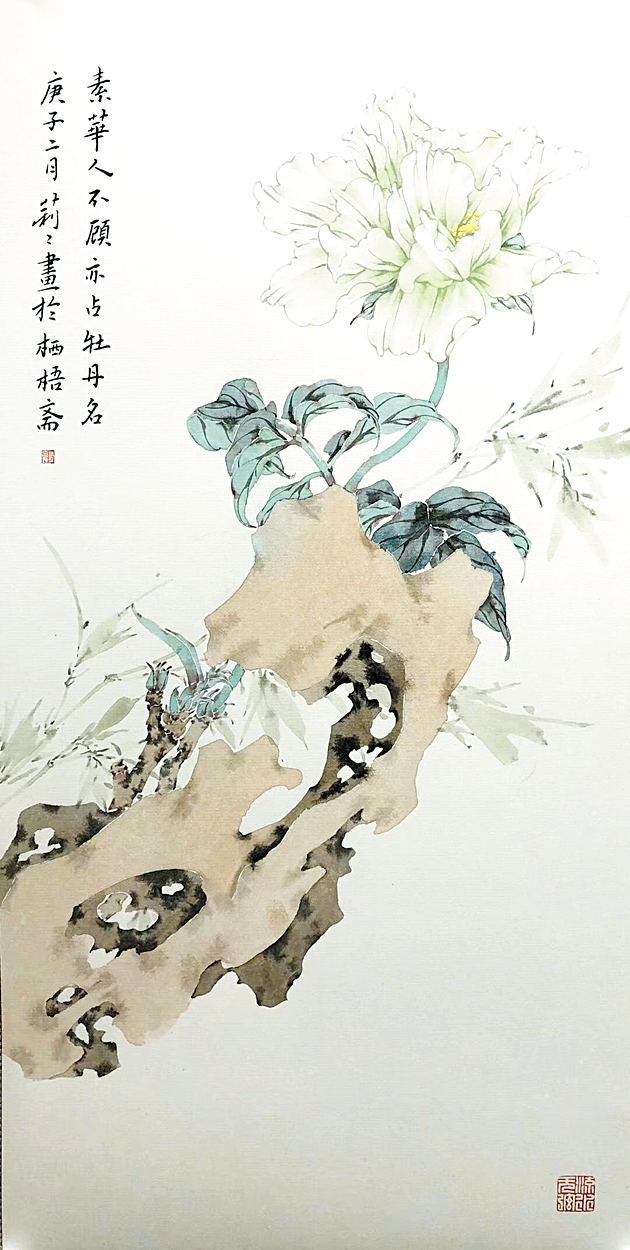 素華人不顧亦占牡丹名
庚子二月莉〻畫於栖梧齋